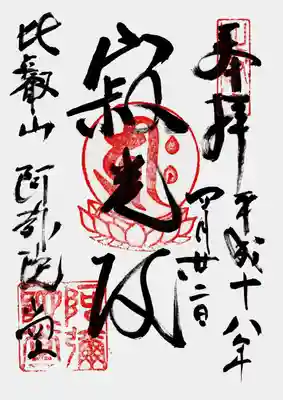 奉拝
平成十八年
四月廿二日
寂光殿
比叡山 阿弥陀堂
阿彌